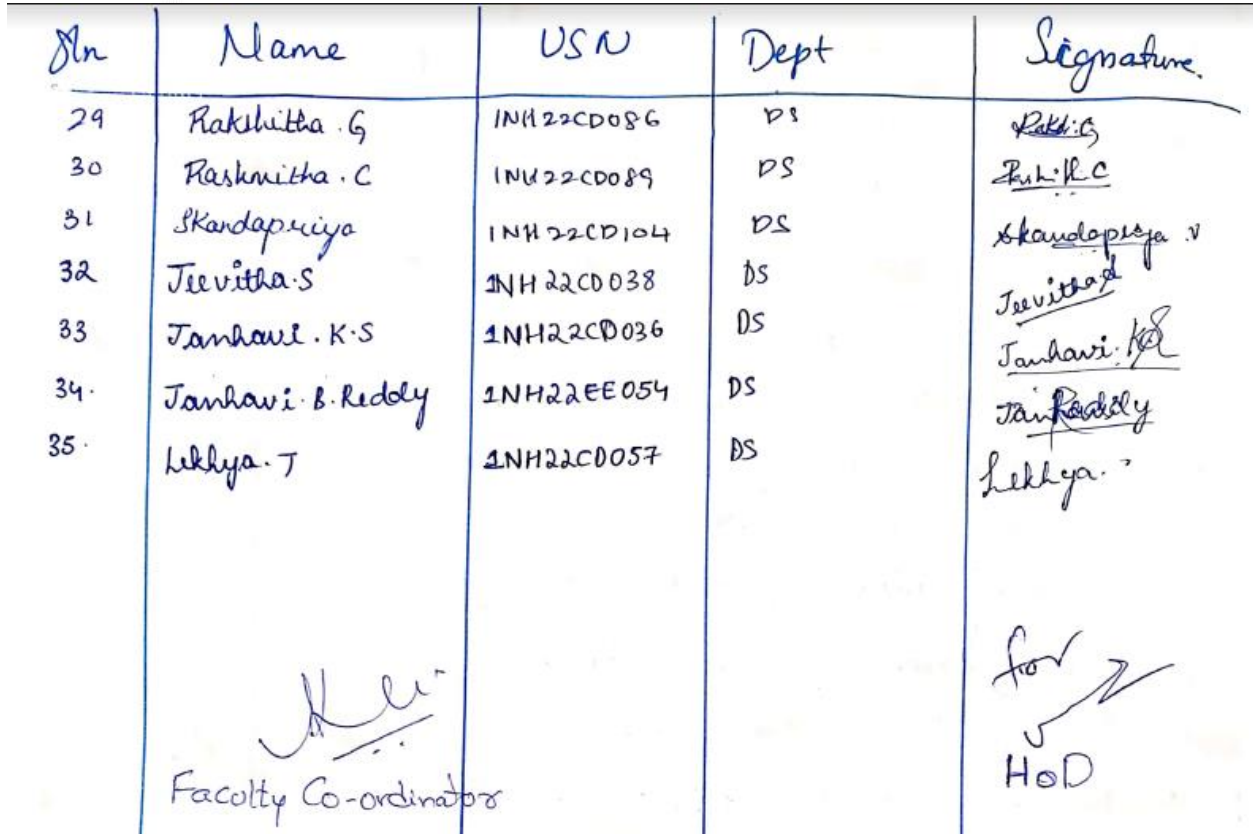 Sln Name USN Dept Signature.
29 Rakshitha . G 1NH22CD086 DS
30 Rashmitha . C 1NH22CD089 DS
31 Skandapriya 1NH22CD104 DS Skandapriya .V
32 Jeevitha.S 1NH22CD038 DS Jeevitha.S
33 Janhavi . K.S 1NH22CD036 DS Janhavi. KS
34. Janhavi. B. Reddy 1NH22EE054 DS
35. Lekhya. T 1NH22CD057 DS Lekhya.
for
HoD
Faculty Co-ordinator